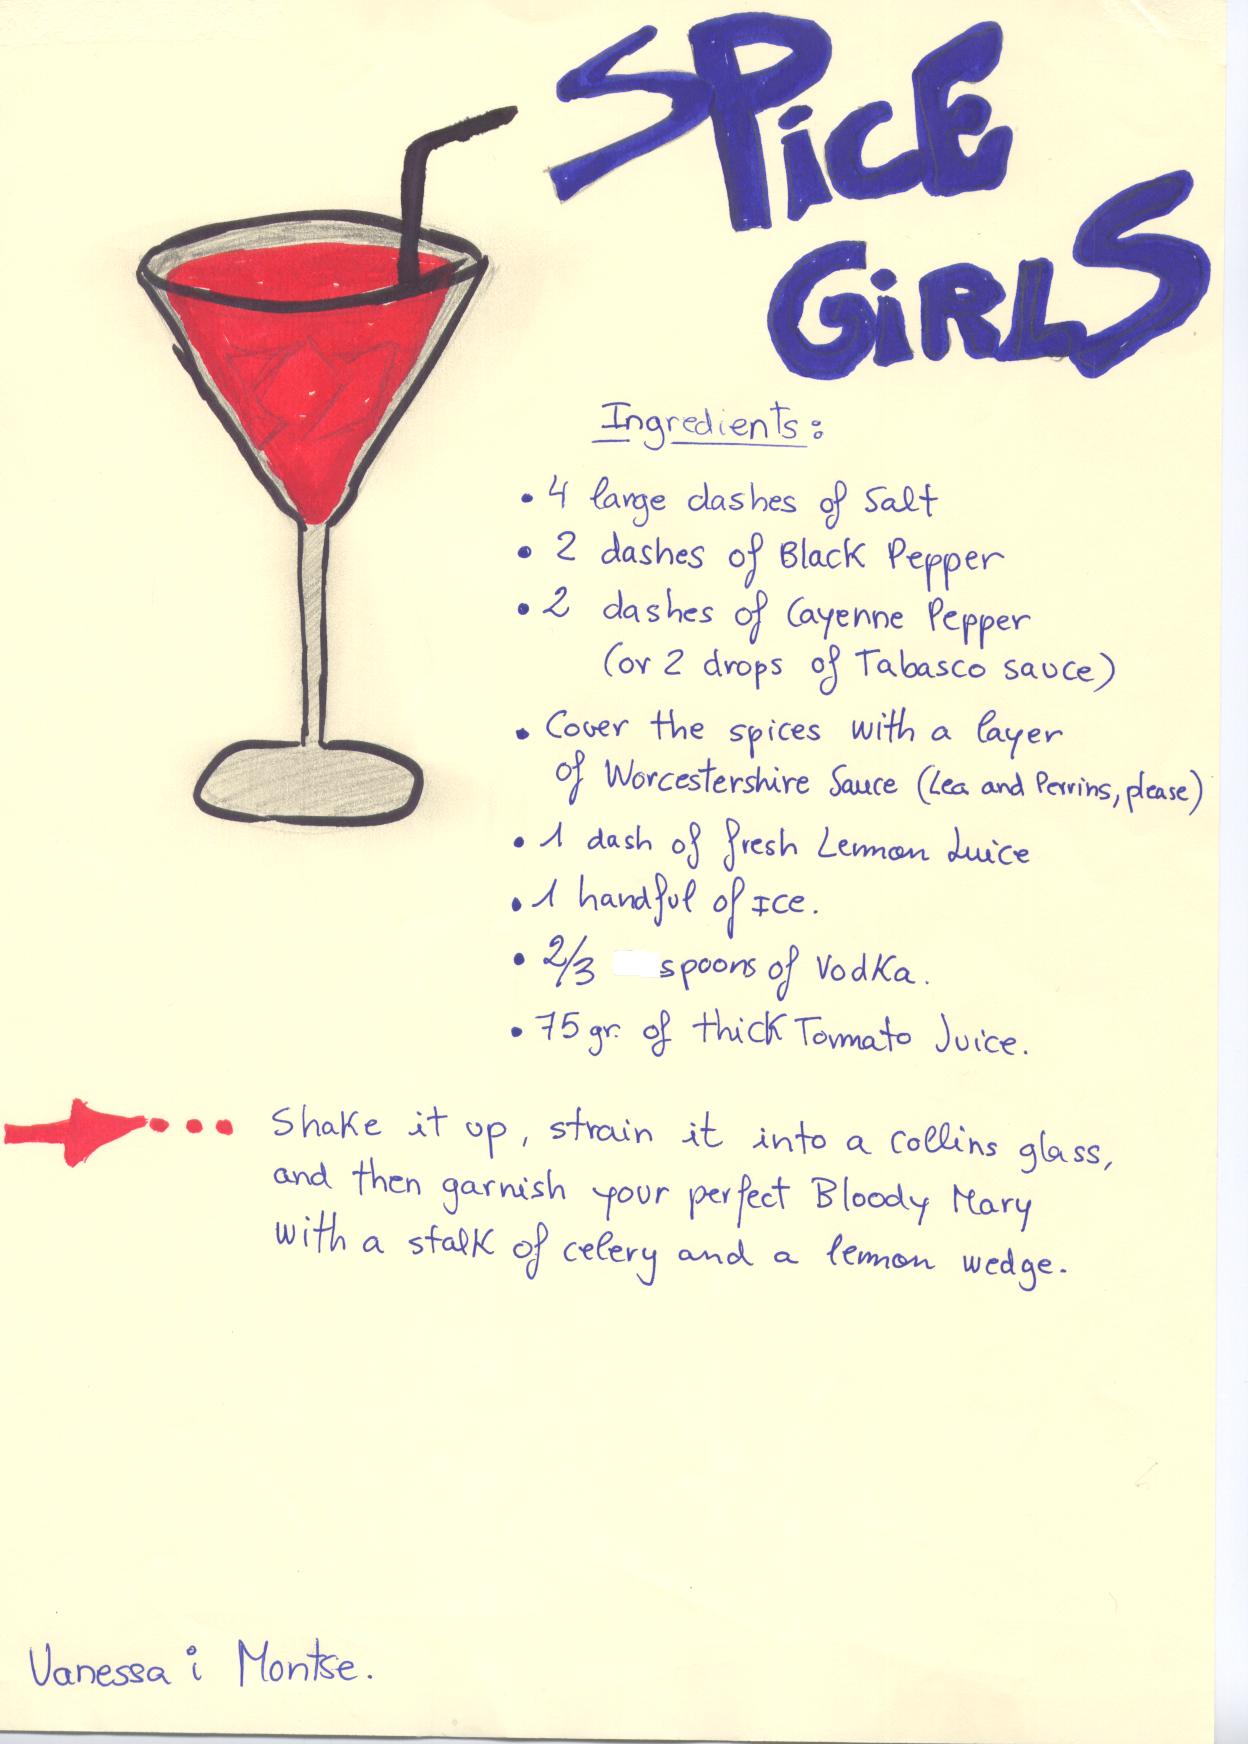 SPiCE
GiRLS
Ingredients:
• 4 large dashes of Salt
• 2 dashes of Black Pepper
• 2 dashes of Cayenne Pepper
(or 2 drops of Tabasco sauce)
• Cover the spices with a layer
of Worcestershire Sauce (Lea and Perrins, please)
• 1 dash of fresh Lemmon Juice
• 1 handful of Ice.
• 2/3 spoons of Vodka.
• 75 gr. of thick Tommato Juice.
Shake it up, strain it into a Collins glass,
and then garnish your perfect Bloody Mary
with a stalk of celery and a lemmon wedge.
Vanessa i Montse.